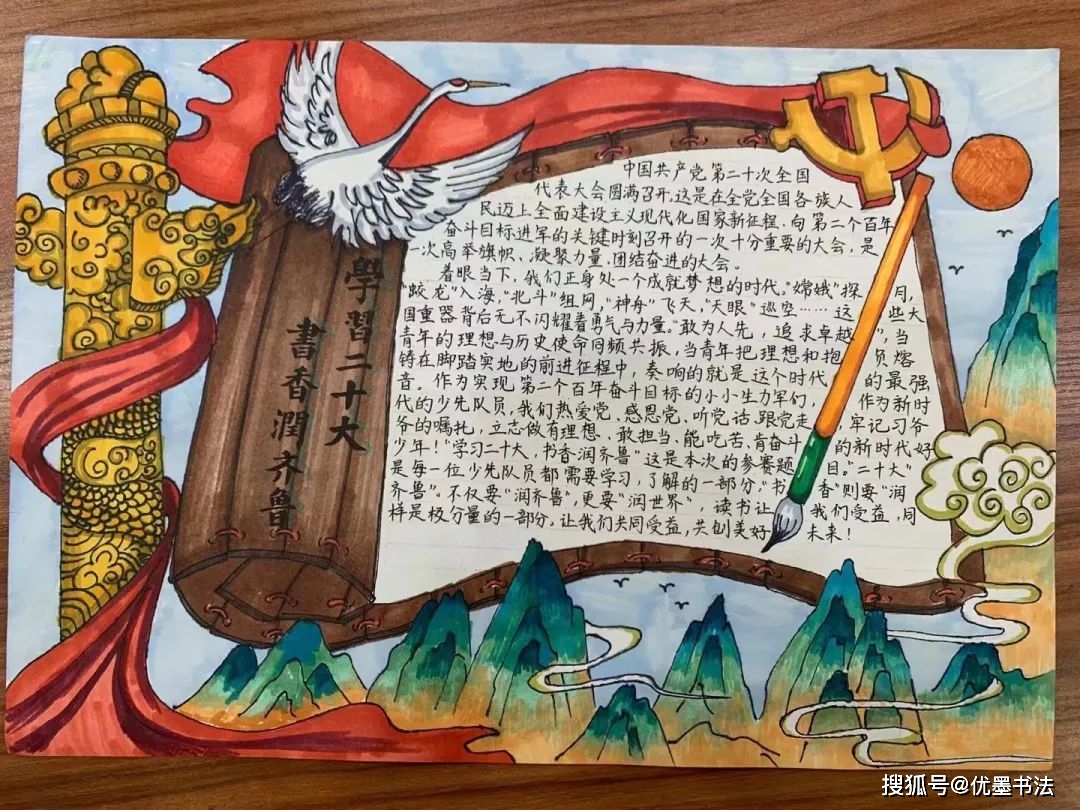 學習二十大
書香潤齐鲁
中国共产党第二十次全国
代表大会圆满召开,这是在全党全国各族人
民迈上全面建设主义现代化国家新征程、向第二个百年
奋斗目标进军的关键时刻召开的一次十分重要的大会,是
一次高举旗帜、凝聚力量、团结奋进的大会。
着眼当下,我们正身处一个成就梦想的时代。"嫦娥"探月,
"蛟龙"入海,"北斗"组网,"神舟"飞天,"天眼"巡空……这些大
国重器背后无不闪耀着勇气与力量。"敢为人先,追求卓越",当
青年的理想与历史使命同频共振,当青年把理想和抱负熔
铸在脚踏实地的前进征程中,奏响的就是这个时代的最强
音。作为实现第二个百年奋斗目标的小小生力军们,作为新时
代的少先队员,我们热爱党、感恩党、听党话、跟党走,牢记习爷
爷的嘱托,立志做有理想、敢担当、能吃苦、肯奋斗的新时代好
少年!"学习二十大,书香润齐鲁"这是本次的参赛题目。"二十大"
是每一位少先队员都需要学习,了解的一部分。"书香"则要"润
齐鲁"。不仅要"润齐鲁",更要"润世界",读书让我们受益,同
样是极分量的一部分。让我们共同受益,共创美好未来!
搜狐号@优墨书法